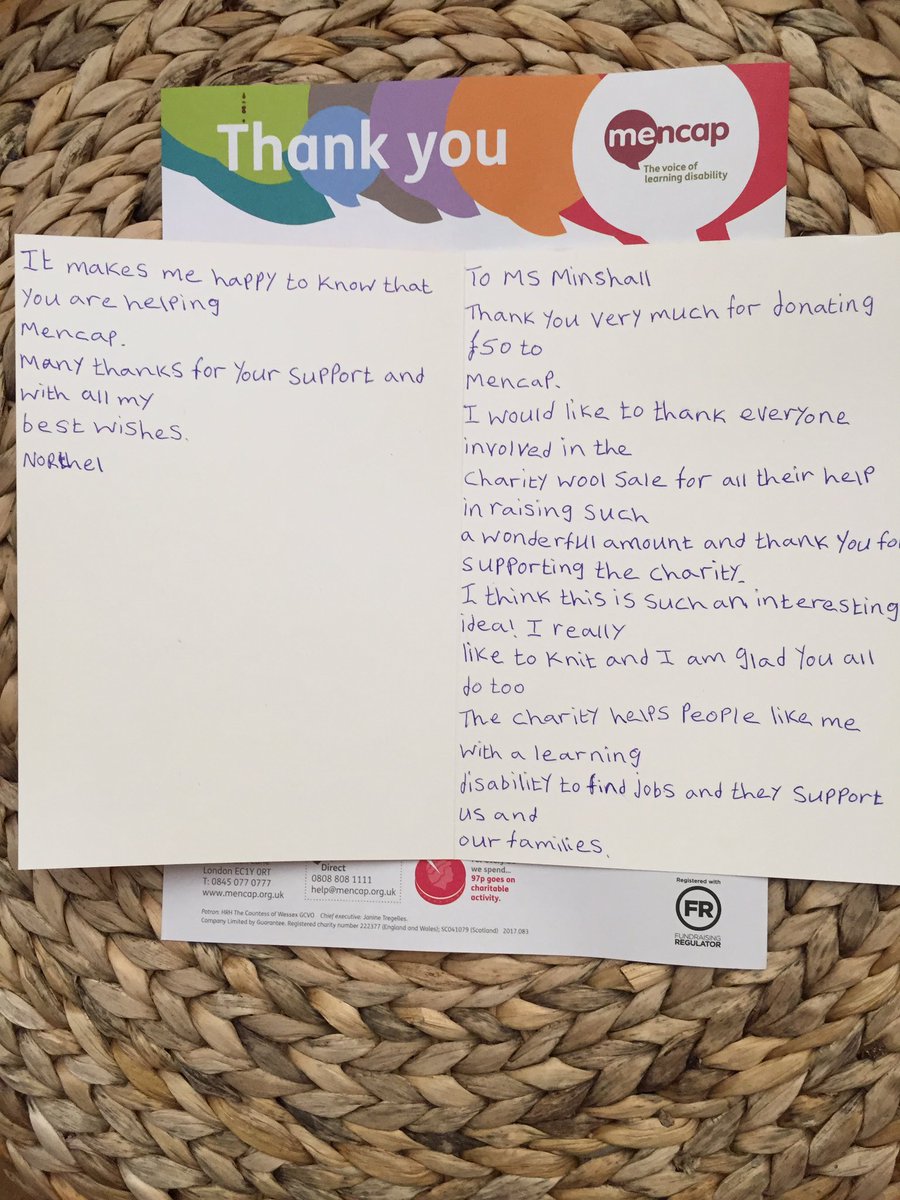 Thank you
mencap
The voice of
learning disability
It makes me happy to know that
you are helping
Mencap.
Many thanks for your support and
with all my
best wishes.
Northel
To Ms Minshall
Thank you very much for donating
£50 to
Mencap.
I would like to thank everyone
involved in the
charity wool sale for all their help
in raising such
a wonderful amount and thank you fo
supporting the charity.
I think this is such an interesting
idea! I really
like to knit and I am glad you all
do too
The charity helps people like me
with a learning
disability to find jobs and they support
us and
our families.
London EC1Y 0RT
T: 0845 077 0777
www.mencap.org.uk
Direct
0808 808 1111
help@mencap.org.uk
we spend...
97p goes on
charitable
activity.
Registered with
FR
FUNDRAISING
REGULATOR
Patron: HRH The Countess of Wessex GCVO Chief executive: Janine Tregelles.
Company Limited by Guarantee. Registered charity number 222377 (England and Wales); SC041079 (Scotland) 2017.083